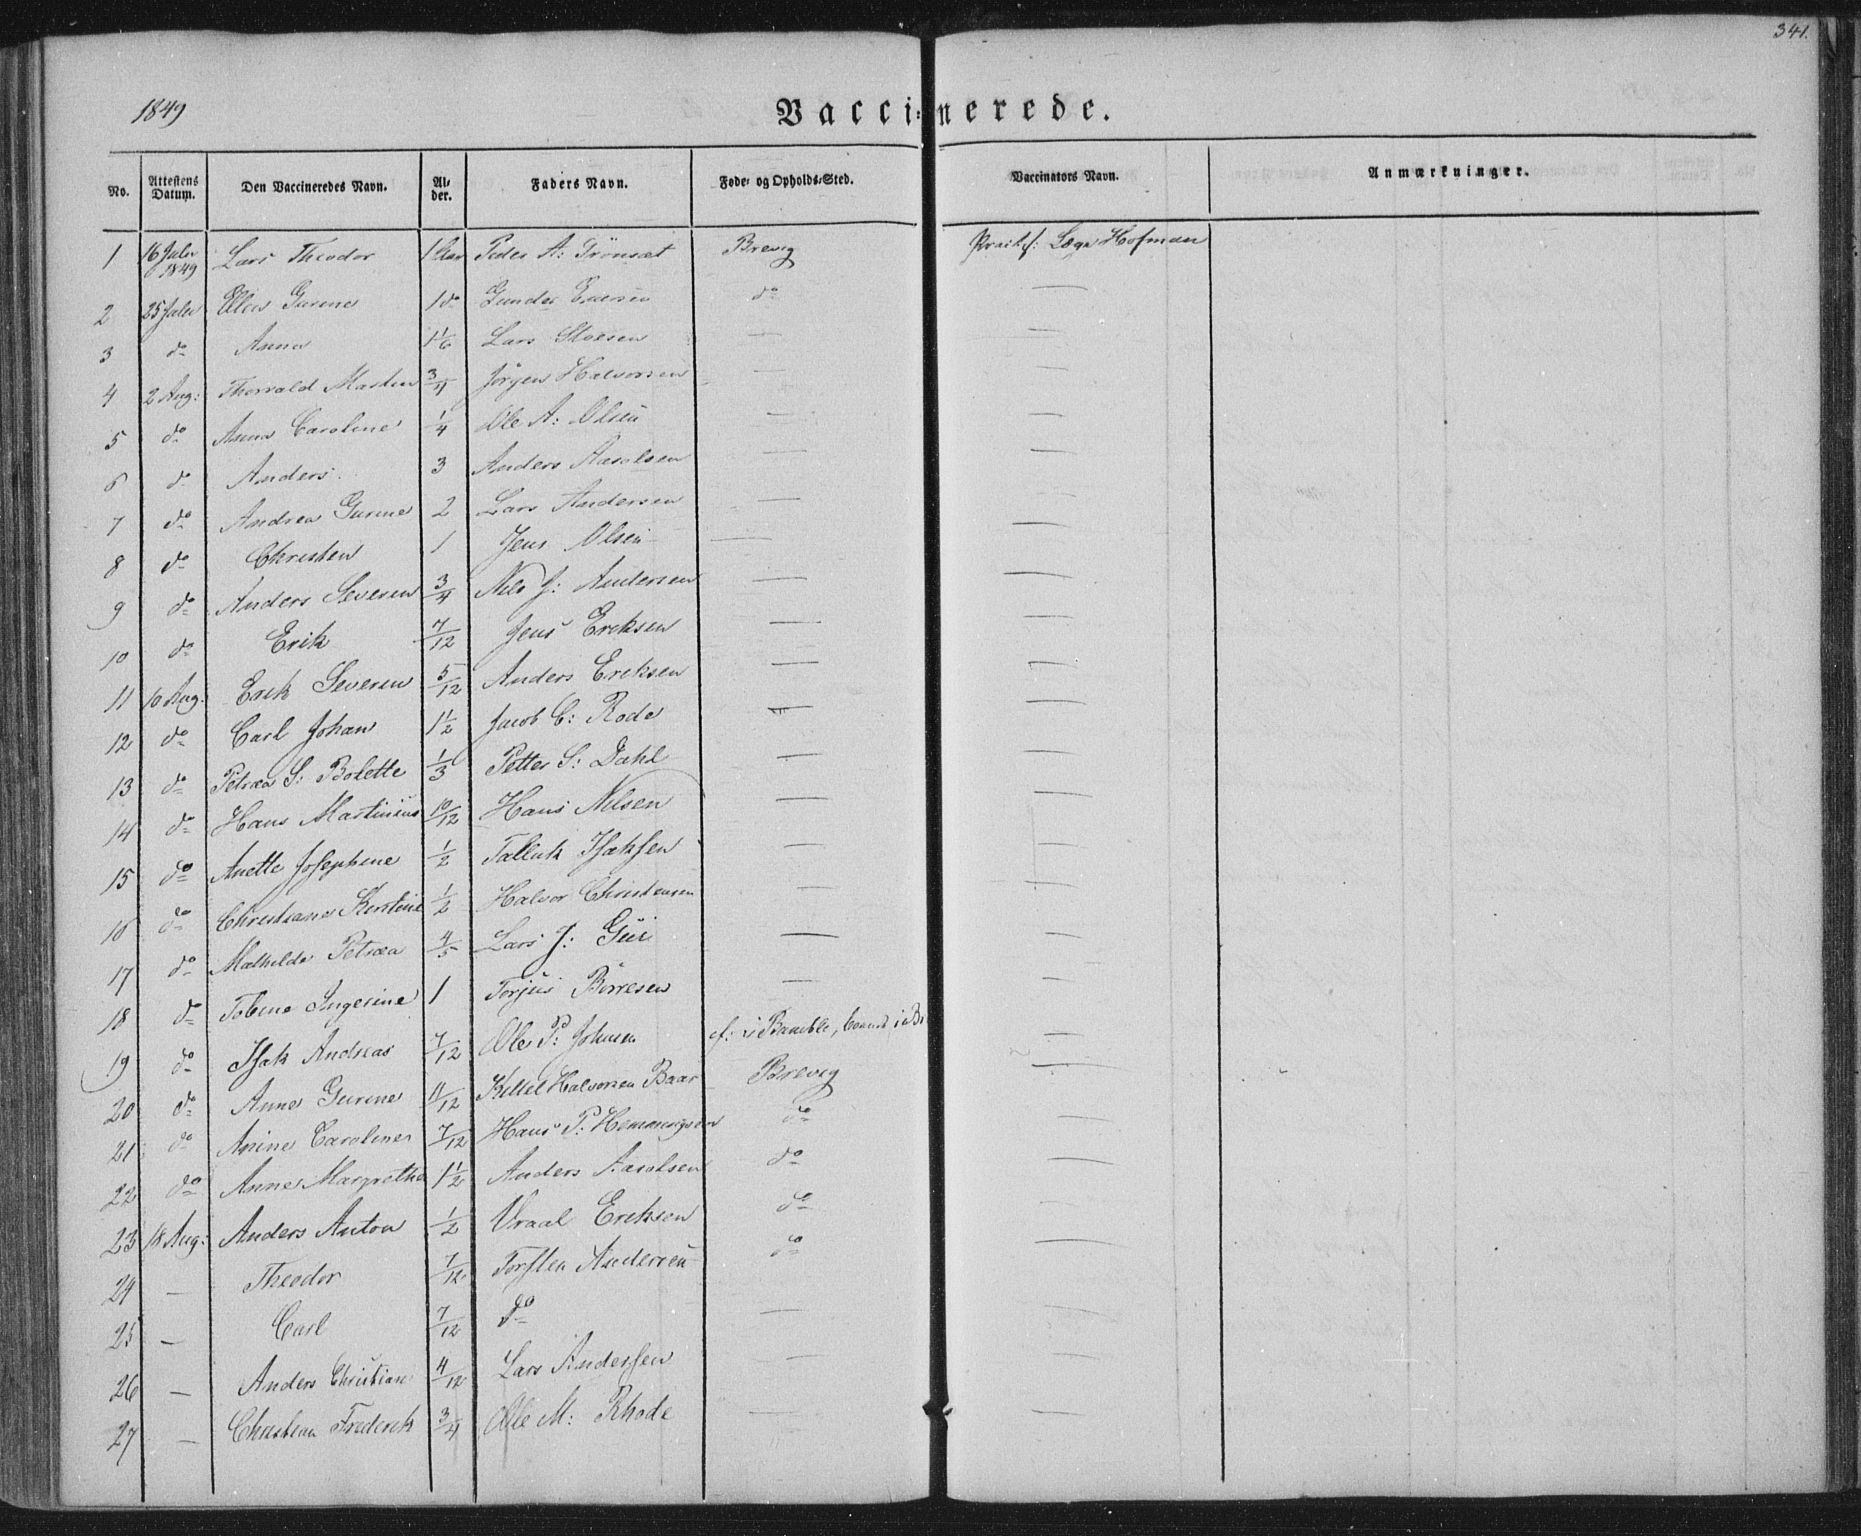 341.
1849
Vaccinerede.
No. Attestens Datum. Den Vaccineredes Navn. Al-der. Faders Navn. Føde- og Opholds-Sted. Vaccinators Navn. Anmærkninger.
1 16 Juli 1849 Lars Theodor 1 Aar Peder A: Trönsæt Brevig Practs: Læge Hofman
2 25 Juli Elen Gurine 1 do Gunder do —
3 do Anna 1 1/6 Lars — —
4 2 Aug: Thorvald Martin 3/4 Jörgen Halvorsen — —
5 do Anna Caroline 1/4 Ole A: Olsen — —
6 do Anders 3 Anders Aasolsen — —
7 do Andrea Gurine 2 Lars Andersen — —
8 do Christen 1 Jens Olsen — —
9 do Anders Severin 3/4 Nils J: Andersen — —
10 do Erik 7/12 Jens Eriksen — —
11 10 Aug: Erik Severin 5/12 Anders Eriksen — —
12 do Carl Johan 1 1/2 Jacob C: Rode — —
13 do Petrea S: Bolette 1/3 Petter S: Dahl — —
14 do Hans Martinius 10/12 Hans Nilsen — —
15 do Anette Josephine 1/2 Talluk Isaksen — —
16 do Christiane Kirstine 1/2 Halvor Christensen — —
17 do Mathilde Petrea 4/5 Lars J: — —
18 do Tobine Ingerine 1 Torjus Börresen — —
19 do Isak Andreas 7/12 Ole P: Johnsen f: i Bamble, boende i Br —
20 do Anne Gurine 11/12 Kittel Halvorsen Baar Brevig —
21 do Anine Caroline 7/12 Hans P: Hemmingsen do —
22 do Anne Margrethe 1 1/2 Anders Aasolsen do —
23 18 Aug: Anders Anton 1/2 Vraal Eriksen do —
24 — Theodor 7/12 Torsten Andersen do —
25 — Carl 7/12 do — —
26 — Anders Christian 4/12 Lars Andersen — —
27 — Christian Frederik 3/4 Ole M: Rhode — —